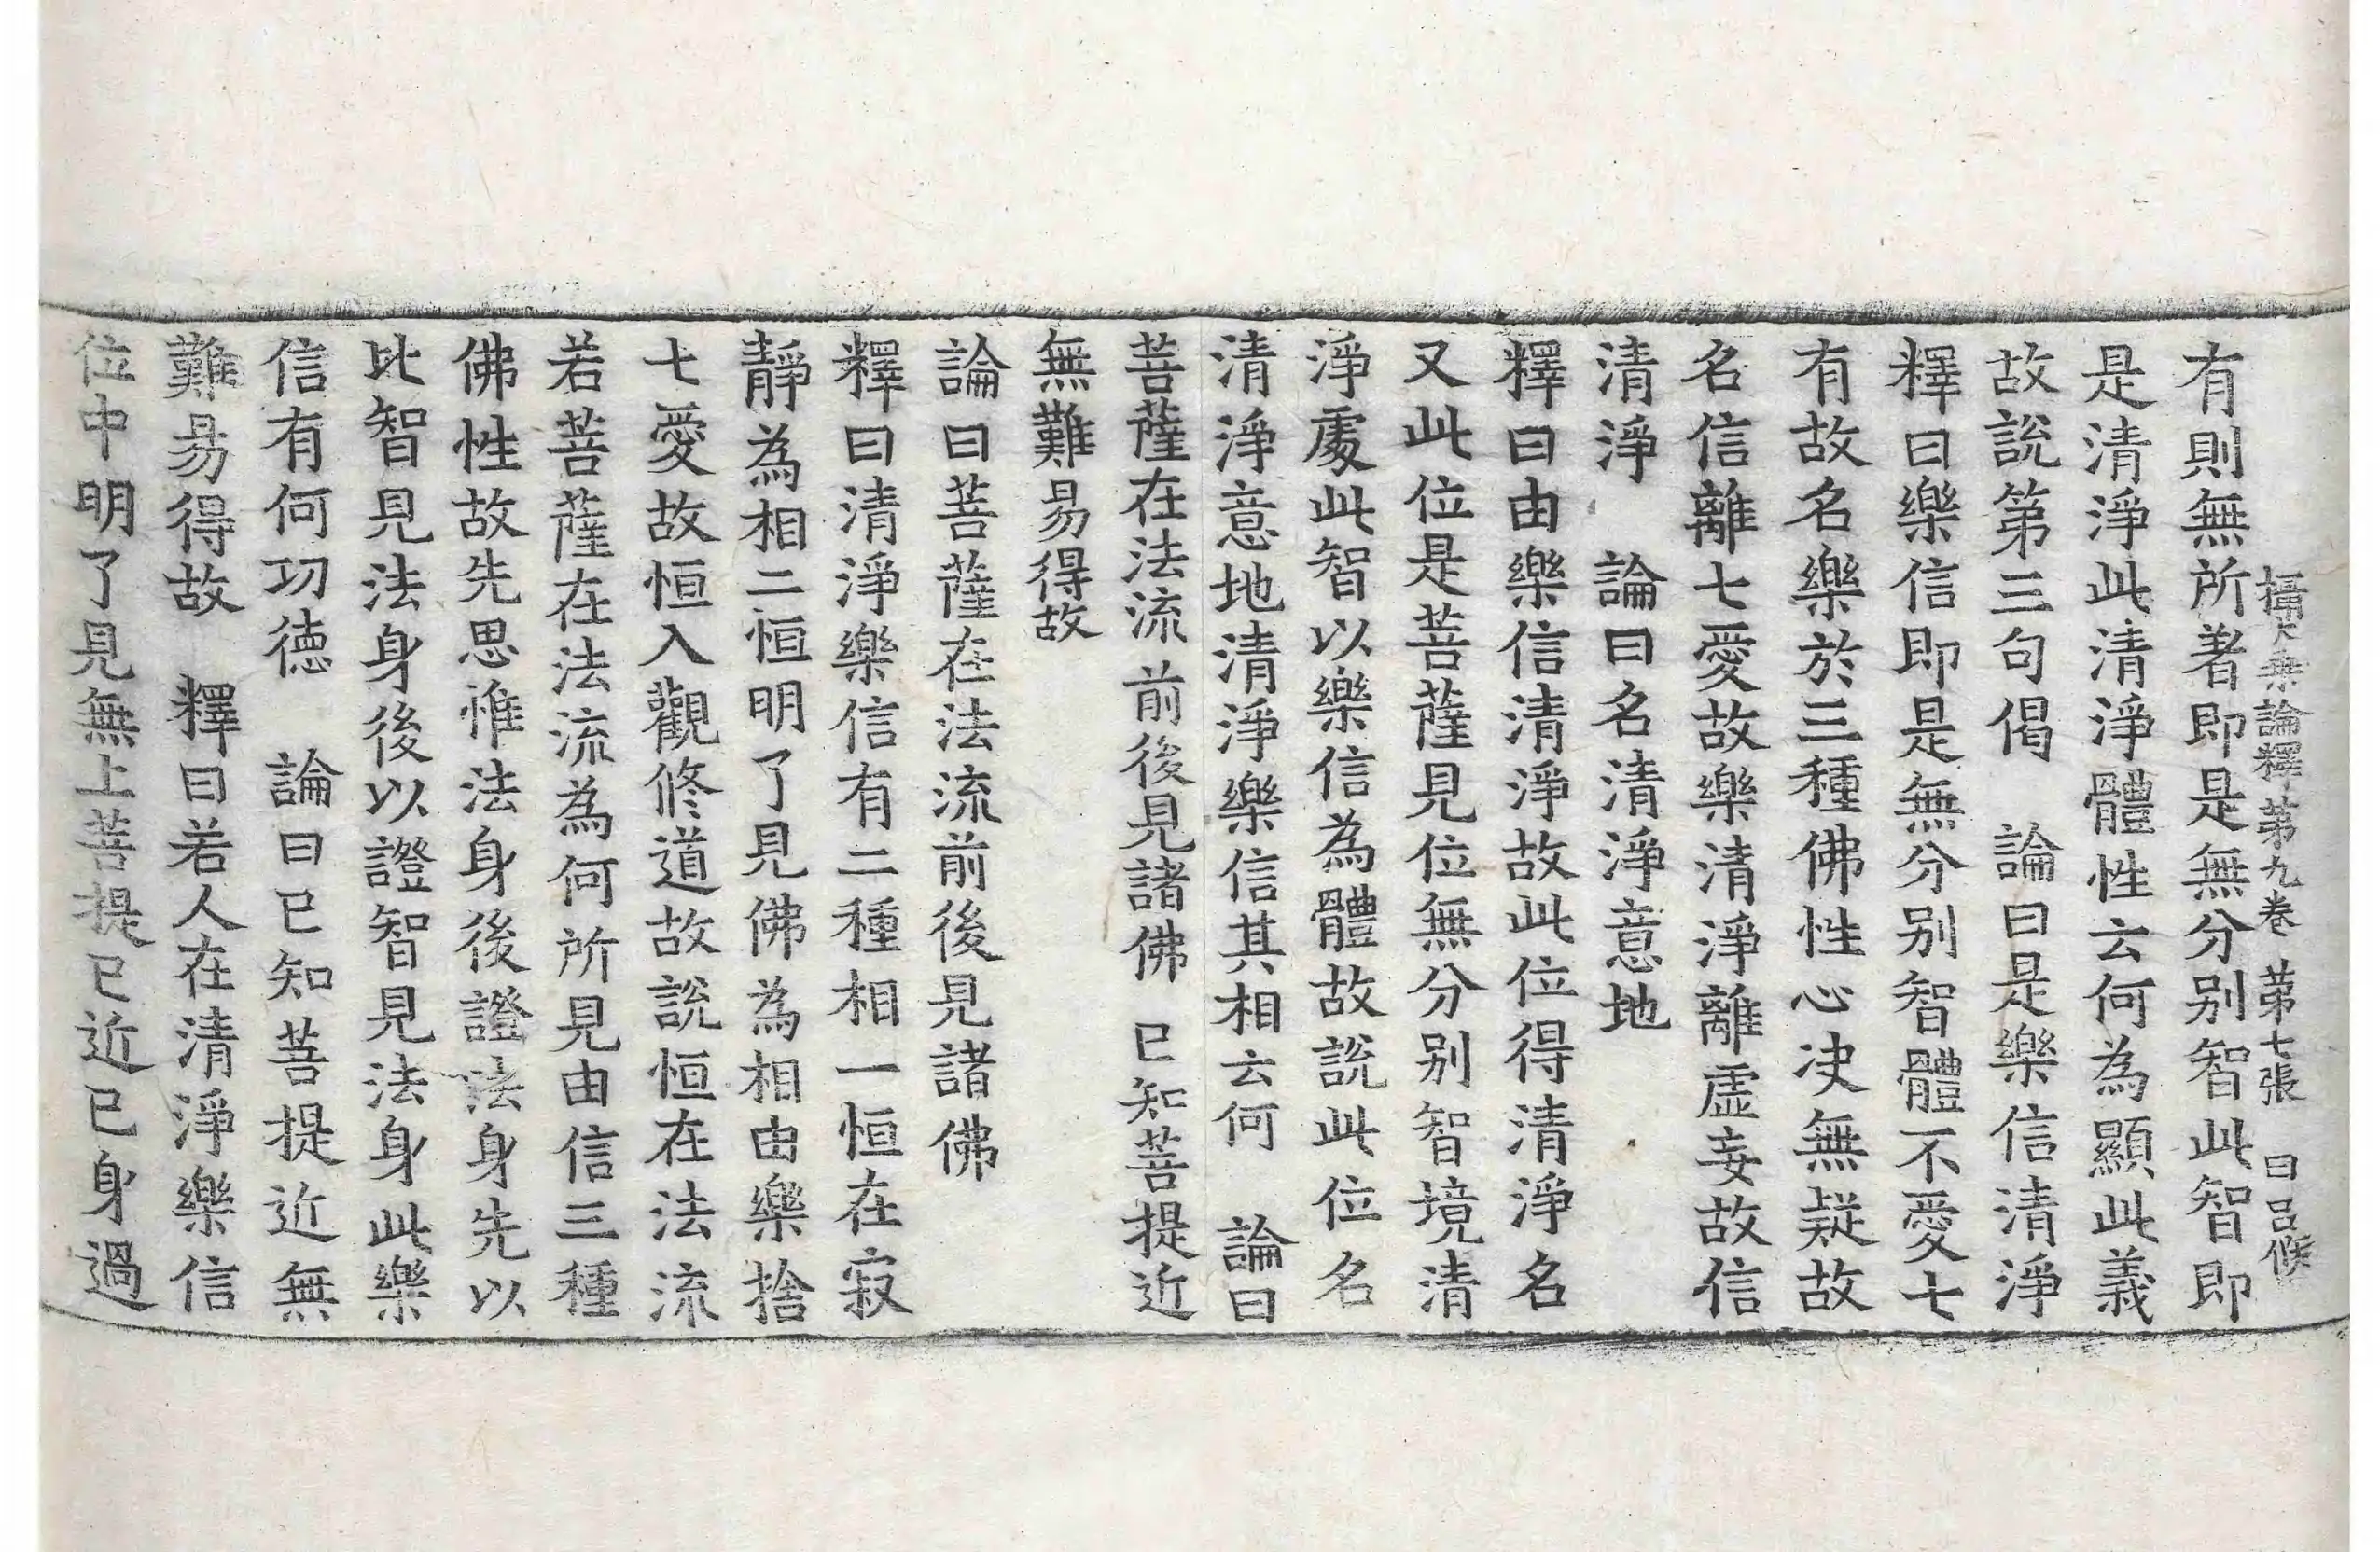 攝大乘論釋第九卷　第七張　日呂倏
有則無所著即是無分别智此智即
是清淨此清淨體性云何為顯此義
故說第三句偈　論曰是樂信清淨
釋曰樂信即是無分别智體不愛七
有故名樂於三種佛性心决無疑故
名信離七愛故樂清淨離虛妄故信
清淨　論曰名清淨意地
釋曰由樂信清淨故此位得清淨名
又此位是菩薩見位無分别智境清
淨處此智以樂信為體故說此位名
清淨意地清淨樂信其相云何　論曰
菩薩在法流　前後見諸佛　已知菩提近
無難易得故
論曰菩薩在法流前後見諸佛
釋曰清淨樂信有二種相一恒在寂
靜為相二恒明了見佛為相由樂捨
七愛故恒入觀修道故說恒在法流
若菩薩在法流為何所見由信三種
佛性故先思惟法身後證法身先以
比智見法身後以證智見法身此樂
信有何功德　論曰已知菩提近無
難易得故　釋曰若人在清淨樂信
位中明了見無上菩提已近已身過